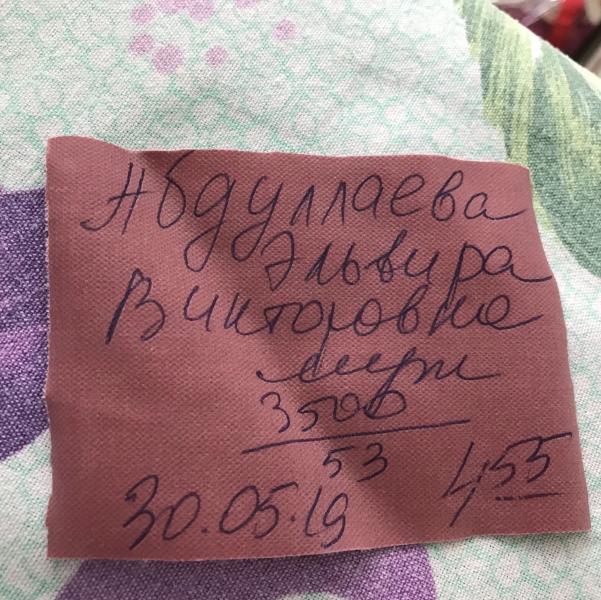 Абдуллаева
Эльвира
Викторовна
3500
53
30.05.19
4 55